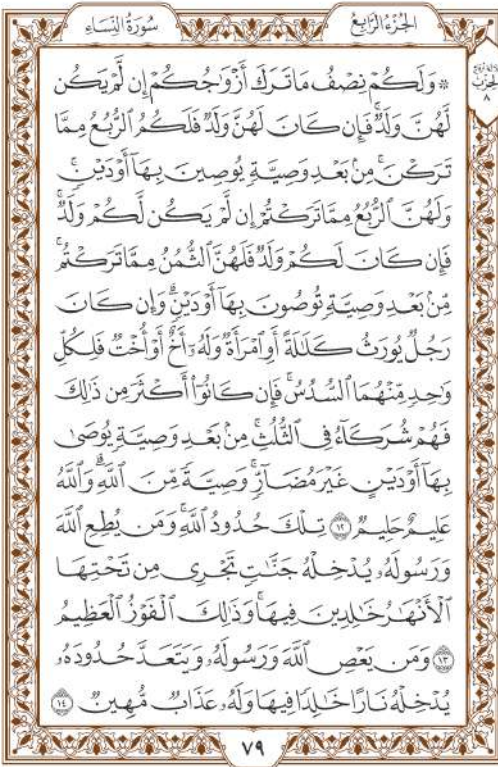 الجزء الرابع
سورة النساء
ربع
الحزب
٨
۞ وَلَكُمْ نِصْفُ مَا تَرَكَ أَزْوَٰجُكُمْ إِن لَّمْ يَكُن
لَّهُنَّ وَلَدٌ ۚ فَإِن كَانَ لَهُنَّ وَلَدٌ فَلَكُمُ ٱلرُّبُعُ مِمَّا
تَرَكْنَ ۚ مِنۢ بَعْدِ وَصِيَّةٍ يُوصِينَ بِهَآ أَوْ دَيْنٍ ۚ
وَلَهُنَّ ٱلرُّبُعُ مِمَّا تَرَكْتُمْ إِن لَّمْ يَكُن لَّكُمْ وَلَدٌ ۚ
فَإِن كَانَ لَكُمْ وَلَدٌ فَلَهُنَّ ٱلثُّمُنُ مِمَّا تَرَكْتُم ۚ
مِّنۢ بَعْدِ وَصِيَّةٍ تُوصُونَ بِهَآ أَوْ دَيْنٍ ۗ وَإِن كَانَ
رَجُلٌ يُورَثُ كَلَٰلَةً أَوِ ٱمْرَأَةٌ وَلَهُۥٓ أَخٌ أَوْ أُخْتٌ فَلِكُلِّ
وَٰحِدٍ مِّنْهُمَا ٱلسُّدُسُ ۚ فَإِن كَانُوٓا۟ أَكْثَرَ مِن ذَٰلِكَ
فَهُمْ شُرَكَآءُ فِى ٱلثُّلُثِ ۚ مِنۢ بَعْدِ وَصِيَّةٍ يُوصَىٰ
بِهَآ أَوْ دَيْنٍ غَيْرَ مُضَآرٍّ ۚ وَصِيَّةً مِّنَ ٱللَّهِ ۗ وَٱللَّهُ
عَلِيمٌ حَلِيمٌ ١٢ تِلْكَ حُدُودُ ٱللَّهِ ۚ وَمَن يُطِعِ ٱللَّهَ
وَرَسُولَهُۥ يُدْخِلْهُ جَنَّٰتٍ تَجْرِى مِن تَحْتِهَا
ٱلْأَنْهَٰرُ خَٰلِدِينَ فِيهَا ۚ وَذَٰلِكَ ٱلْفَوْزُ ٱلْعَظِيمُ
١٣ وَمَن يَعْصِ ٱللَّهَ وَرَسُولَهُۥ وَيَتَعَدَّ حُدُودَهُۥ
يُدْخِلْهُ نَارًا خَٰلِدًا فِيهَا وَلَهُۥ عَذَابٌ مُّهِينٌ ١٤
٧٩